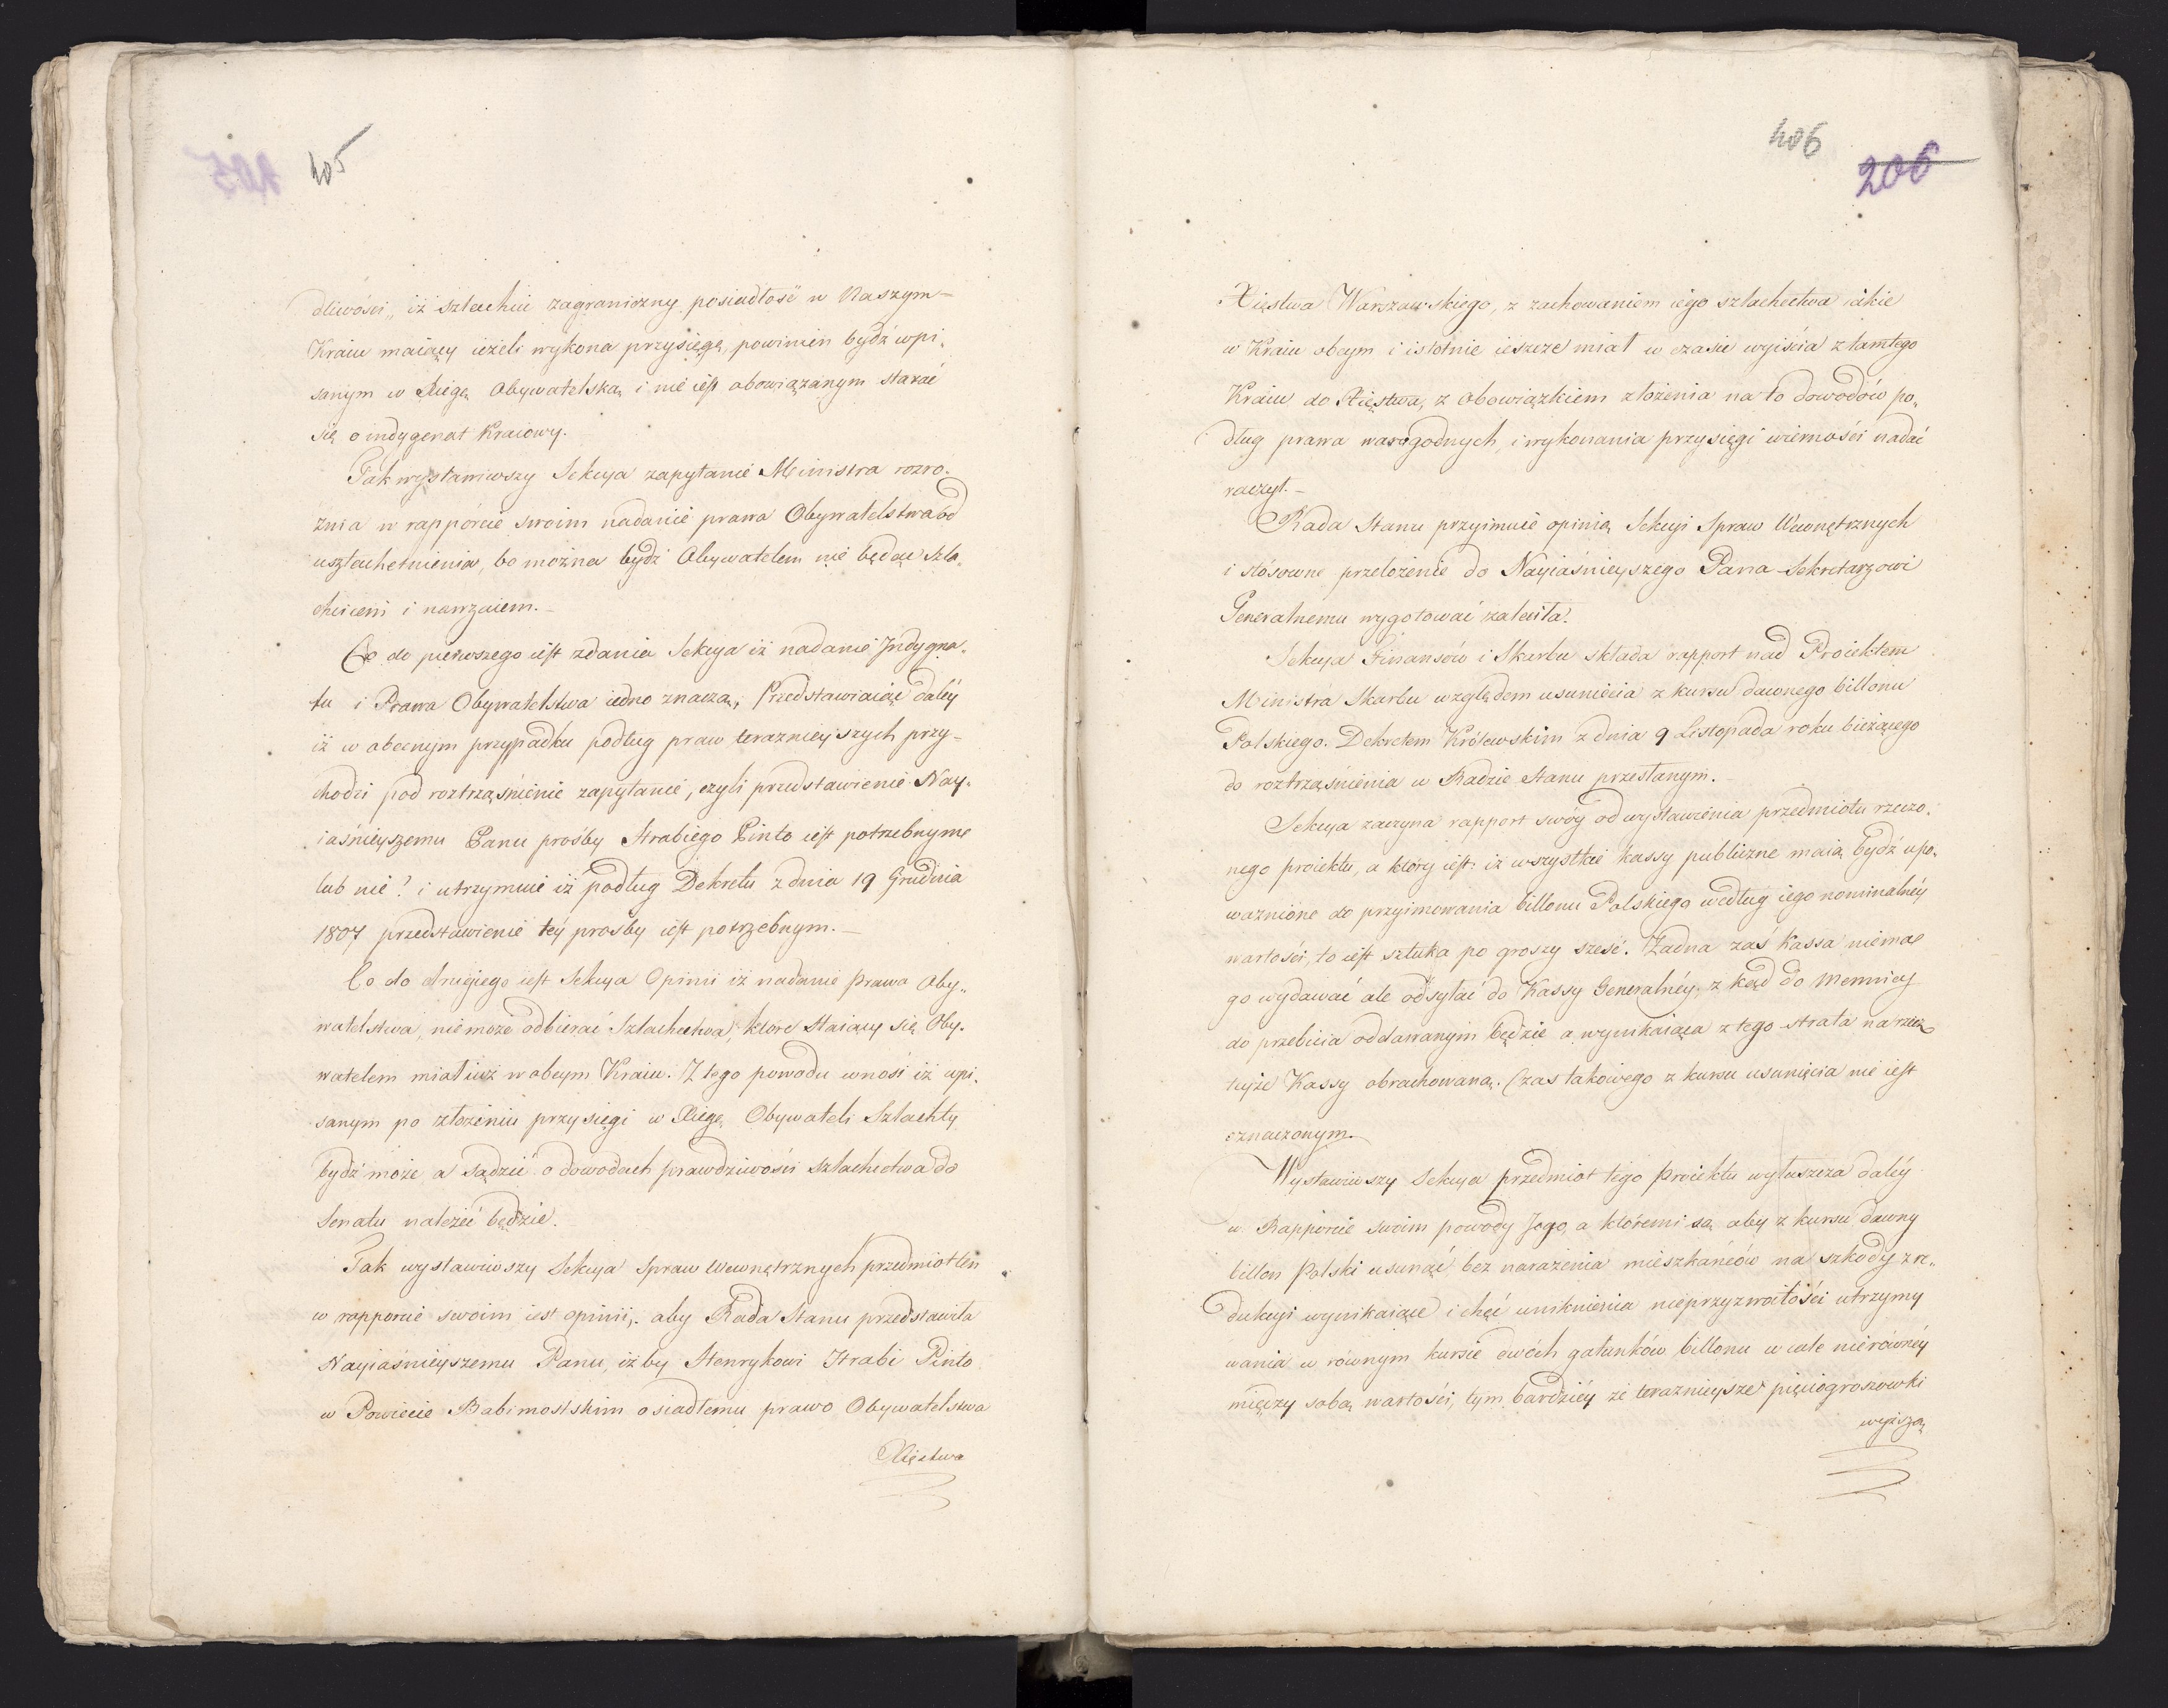 405
dliwości„ iż szlachcic zagraniczny posiadłość w Naszym
Kraiu maiący ieżeli wykona przysięgę, powinien bydź wpi„
sanym w Xięgę Obywatelską i nie iest obowiązanym starać
się o indygenat Kraiowy.
Tak wystawiwszy Sekcya zapytanie Ministra rozro„
żnia w rapporcie swoim nadanie prawa Obywatelstwa od
uszlachetnienia, bo można bydź Obywatelem nie będąc Szla„
chcicem i nawzaiem.—
Co do pierwszego iest zdania Sekcya iż nadanie Indygna„
tu i Prawa Obywatelstwa iedno znaczą; Przedstawiaiąc daléy
iż w obecnym przypadku podług praw teraznieyszych przy-
chodzi pod roztrząśnienie zapytanie, czyli przedstawienie Nay„
iaśnieyszemu Panu prośby Hrabiego Pinto iest potrzebnym
lub nie? i utrzymuie iż podług Dekretu z dnia 19 Grudnia
1807 przedstawienie téy prośby iest potrzebnym.—
Co do drugiego iest Sekcya Opinii iż nadanie prawa Oby„
watelstwa, niemoże odbierać Szlachectwa, które Staiący się Oby„
watelem miał iuż w obcym Kraiu. Z tego powodu wnosi iż wpi„
sanym po złożeniu przysięgi w Xięgę Obywateli Szlachty
bydź może, a sądzić o dowodach prawdziwości szlachectwa do
Senatu należeć będzie.
Tak wystawiwszy Sekcya Spraw Wewnętrznych przedmiot ten
w rapporcie swoim iest opinii, aby Rada Stanu przedstawiła
Nayiaśnieyszemu Panu, iżby Henrykowi Hrabi Pinto
w Powiecie Babimostskim osiadłemu prawo Obywatelstwa
Xięstwa
406
206
Xięstwa Warszawskiego, z zachowaniem iego szlachectwa iakie
w Kraiu obcym i istotnie ieszcze miał w czasie wyiścia z tamtego
Kraiu do Xięstwa, z obowiązkiem złożenia na to dowodów po„
dług prawa wiarogodnych, i wykonania przysięgi wierności nadać
raczył.—
Rada Stanu przyimuie opinią Sekcyi Spraw Wewnętrznych
i stósowne przełożenie do Nayiaśnieyszego Pana Sekretarzowi
Generalnemu wygotować zaleciła.
Sekcya Finansów i Skarbu składa rapport nad Proiektem
Ministra Skarbu względem usunięcia z kursu dawnego billonu
Polskiego. Dekretem Królewskim z dnia 9 Listopada roku bieżącego
do roztrząśnienia w Radzie Stanu przesłanym.—
Sekcya zaczyna rapport swóy od wystawienia przedmiotu rzeczo„
nego proiektu, a który iest: iż wszystkie kassy publiczne maią bydź upo„
ważnione do przyimowania billonu Polskiego według iego nominalnéy
wartości, to iest sztuka po groszy sześć. Żadna zaś Kassa niema
go wydawać ale odsyłać do Kassy Generalnéy, z kąd do Mennicy
do przebicia oddawanym będzie a wynikaiąca z tego strata na rzecz
teyże Kassy obrachowaną. Czas takowego z kursu usunięcia nie iest
oznaczonym.
Wystawiwszy Sekcya przedmiot tego proiektu wyłuszcza daléy
w Rapporcie swoim powody Jego, a któremi są aby z kursu dawny
billon Polski usunąć bez narażenia mieszkańców na szkody z re„
dukcyi wynikaiące i chęć uniknienia nieprzyzwoitości utrzymy
wania w równym kursie dwóch gatunków billonu w cale nierównéy
między sobą wartości, tym bardziéy że teraznieysze pięciogroszowki
wyższą